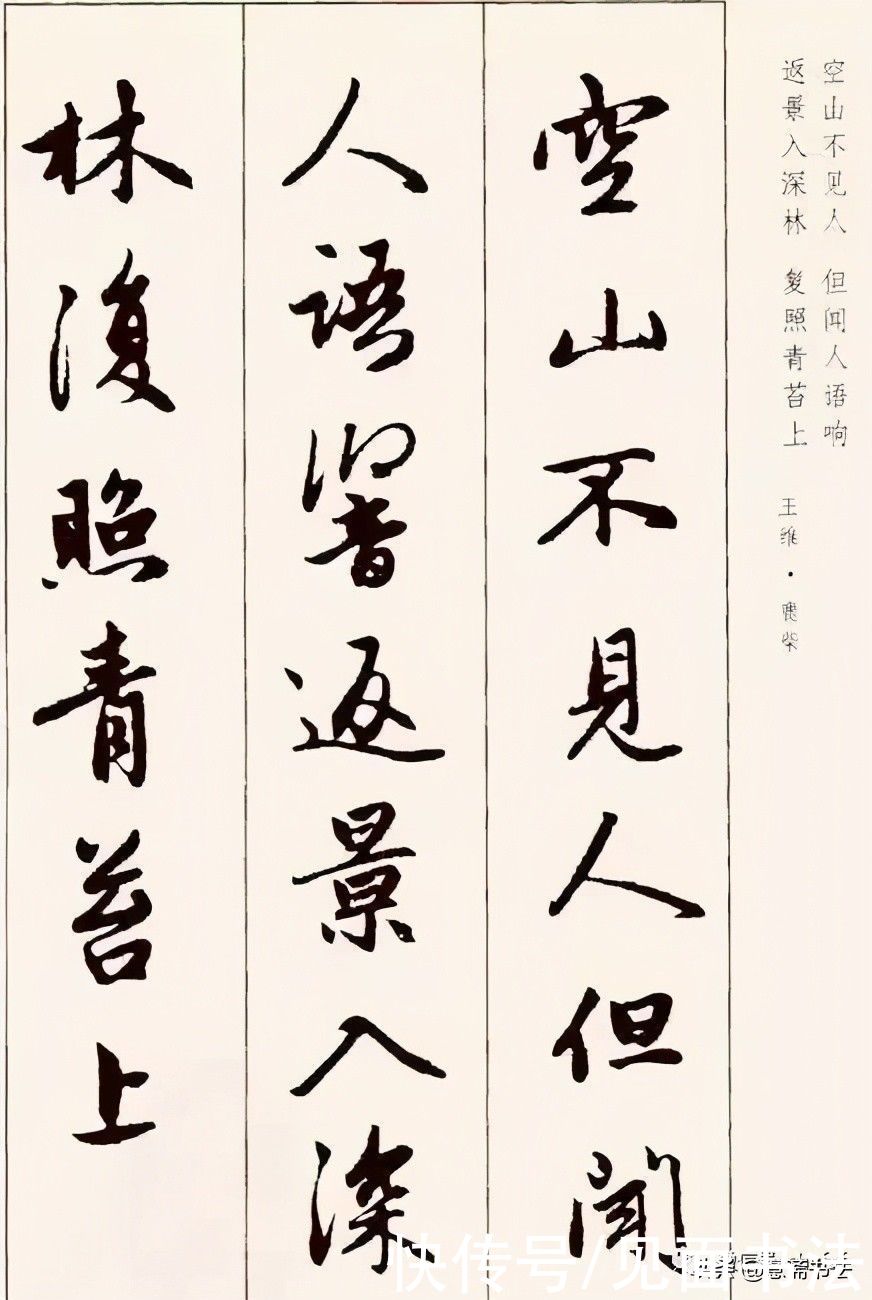 空山不见人 但闻人语响
返景入深林 复照青苔上 王维·鹿柴
空山不見人但聞
人語響返景入深
林復照青苔上
快传号/见面书法